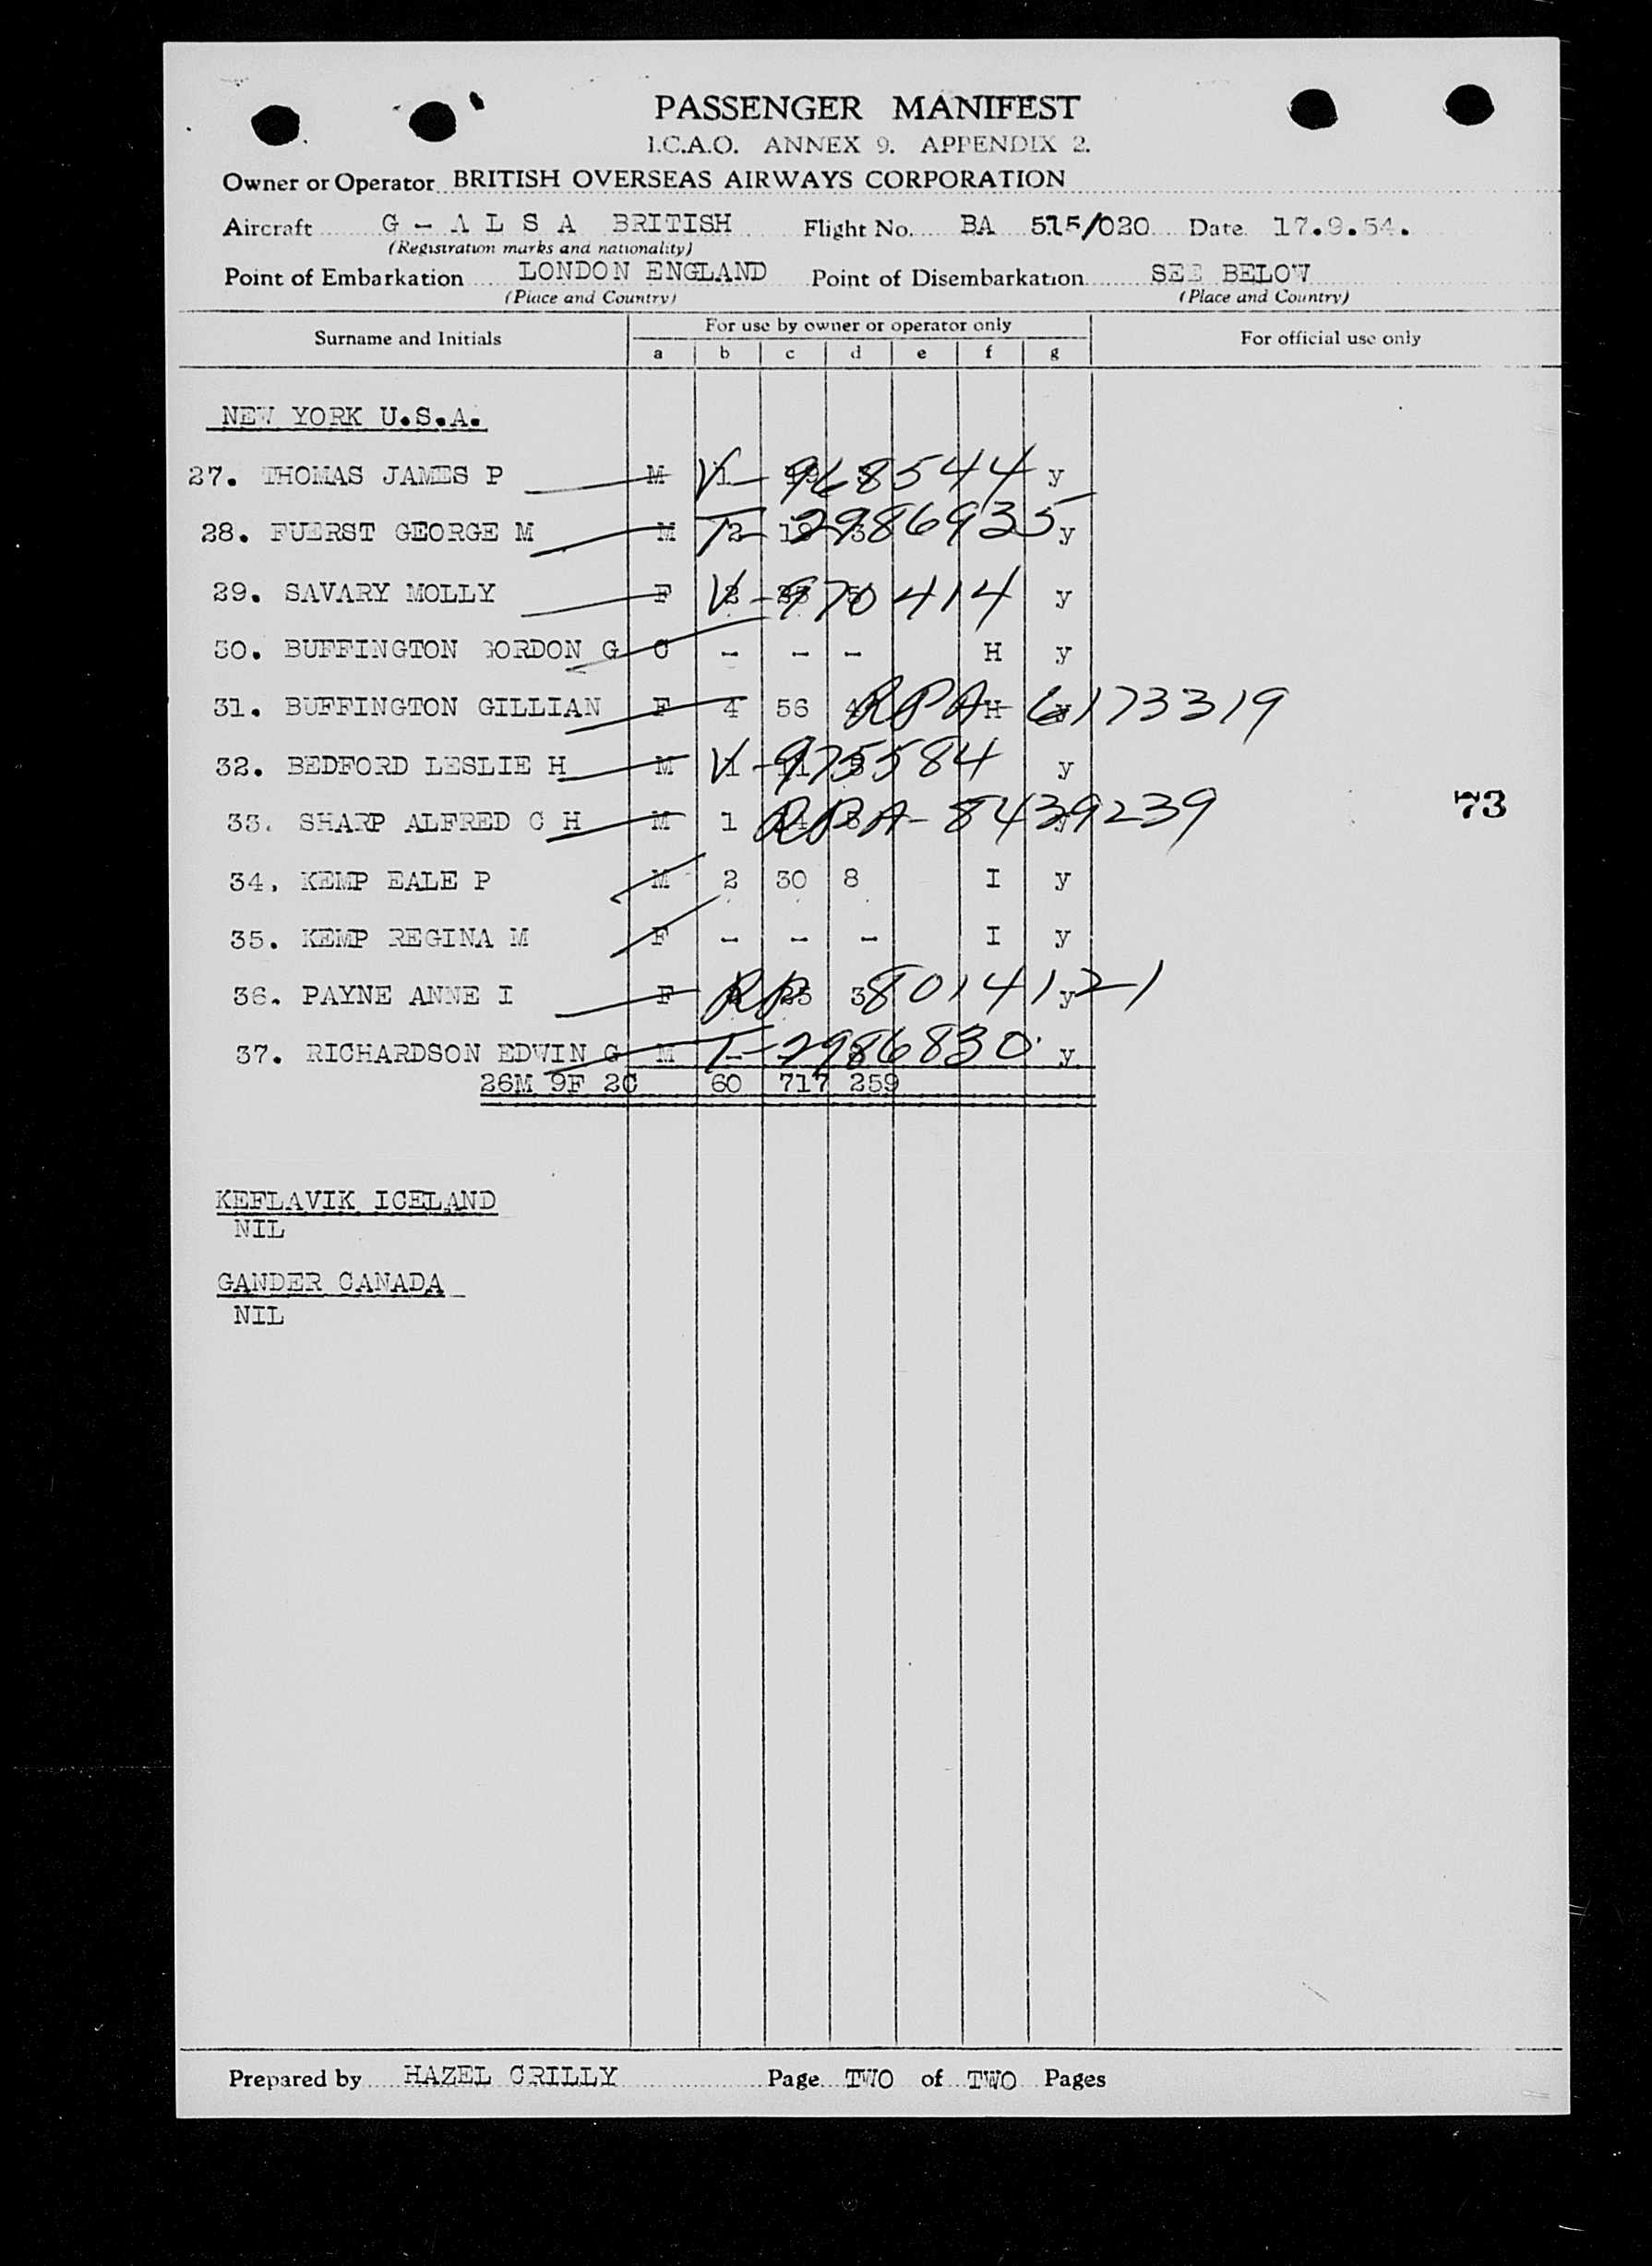 PASSENGER MANIFEST
I.C.A.O. ANNEX 9. APPENDIX 2.
Owner or Operator BRITISH OVERSEAS AIRWAYS CORPORATION
Aircraft G - A L S A BRITISH Flight No. BA 515/020 Date 17.9.54.
(Registration marks and nationality)
Point of Embarkation LONDON ENGLAND Point of Disembarkation SEE BELOW
(Place and Country) (Place and Country)
Surname and Initials For use by owner or operator only For official use only
a b c d e f g
NEW YORK U.S.A.
27. THOMAS JAMES P M V-968544 y
28. FUERST GEORGE M M T-2986935 y
29. SAVARY MOLLY F V-970414 y
30. BUFFINGTON GORDON G C - - - H y
31. BUFFINGTON GILLIAN F 4 56 RPA H 6173319
32. BEDFORD LESLIE H M V-975584 y
33. SHARP ALFRED C H M 1 RPA-8439239
73
34. KEMP EALE P M 2 30 8 I y
35. KEMP REGINA M F - - - I y
36. PAYNE ANNE I F RP 25 3 8014121 y
37. RICHARDSON EDWIN G M T-2986830 y.
26M 9F 2C 60 717 259
KEFLAVIK ICELAND
NIL
GANDER CANADA
NIL
Prepared by HAZEL CRILLY Page TWO of TWO Pages